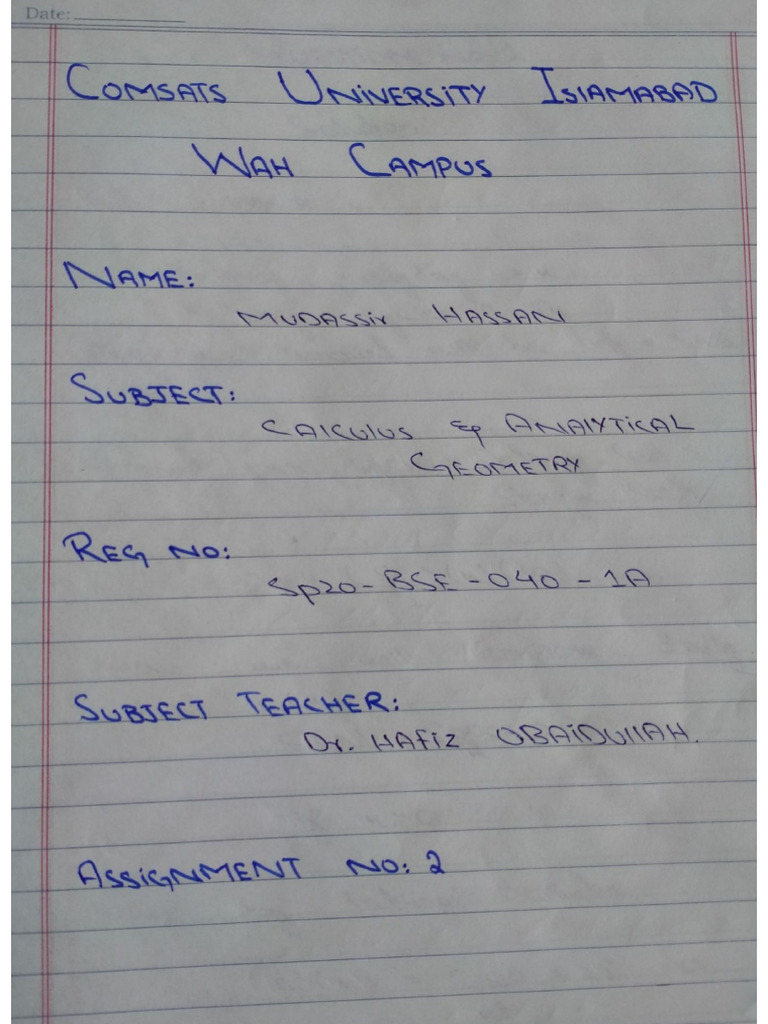 Date:
COMSATS UNIVERSITY ISlAMABAD
WAH CAMPUS
NAME:
MUDASSir HASSAN
SUBJECT:
CAlCUlUS & ANAlYTiCAL
GEOMETRY
REG NO:
Sp20-BSE-040-1A
SUBJECT TEACHER:
Dr. HAfiZ OBAiDUllAH.
ASSiGNMENT NO: 2